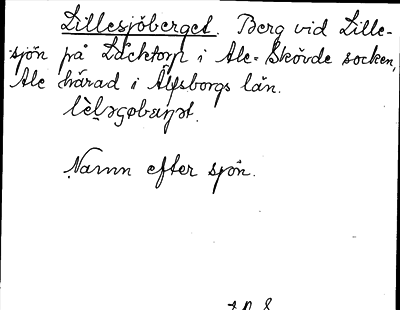 Lillesjöberget. Berg vid Lille-
sjön på Läcktorp i Ale-Skövde socken,
Ale härad i Älfsborgs län.
Namn efter sjön.